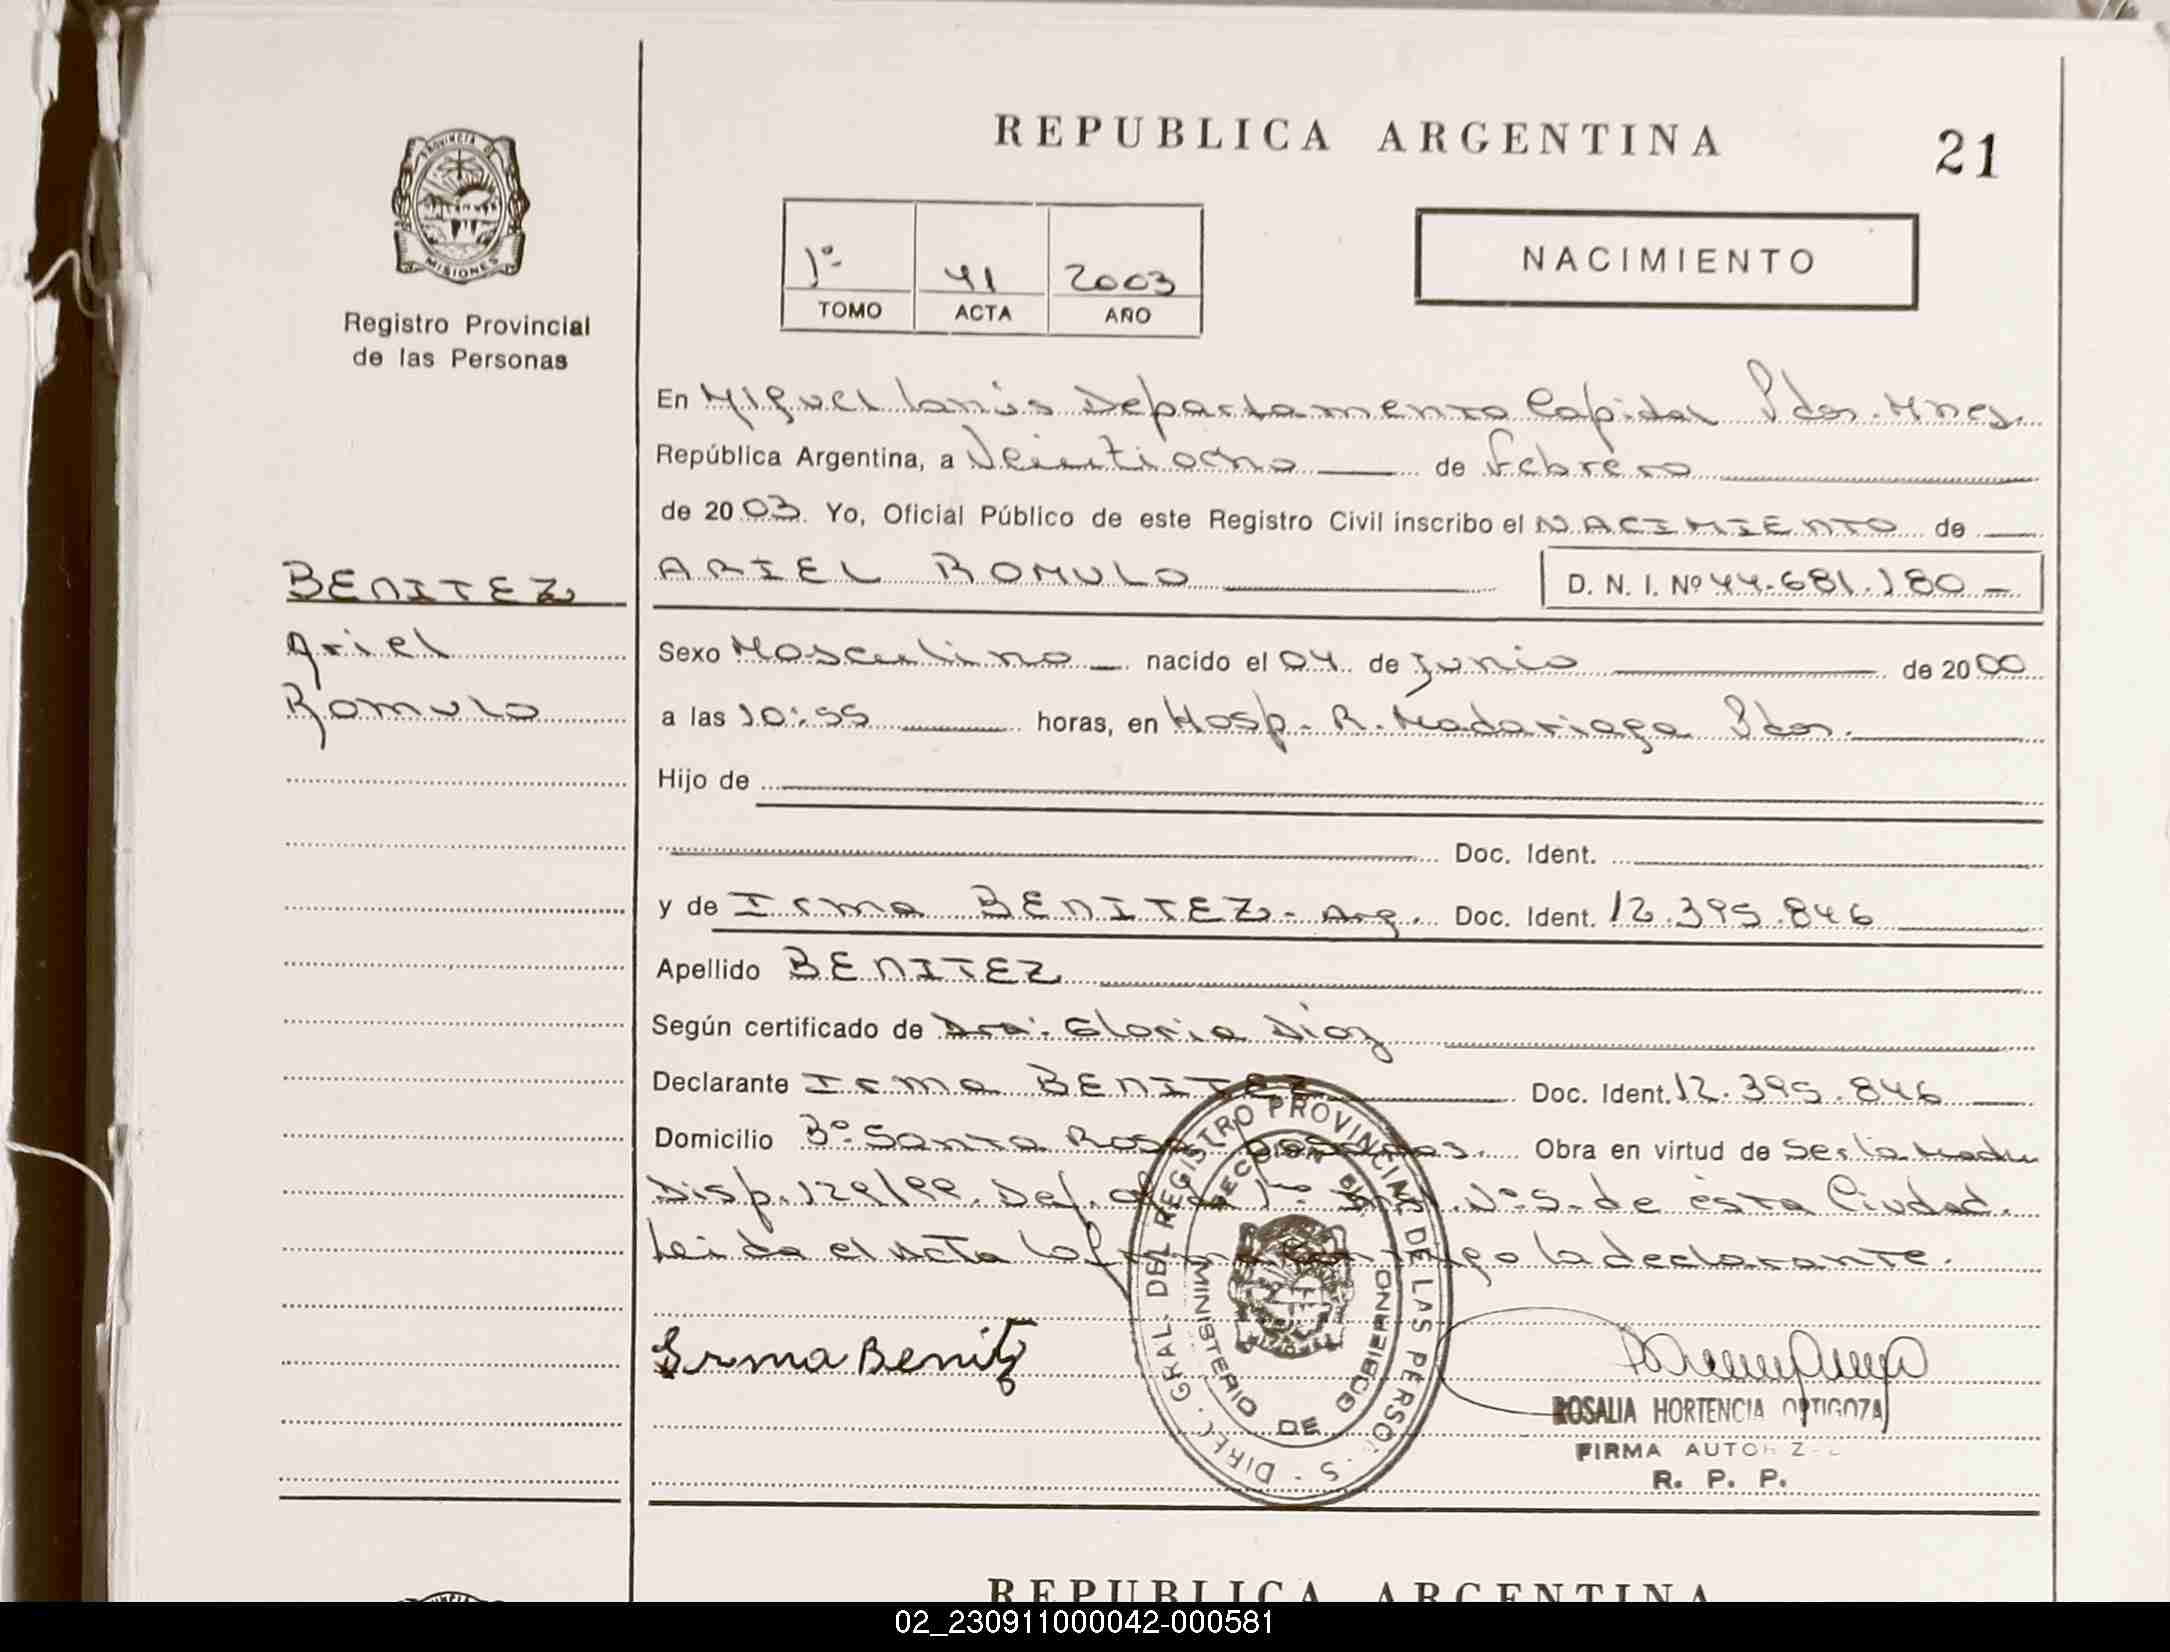 REPUBLICA ARGENTINA
21
PROVINCIA DE
MISIONES
Registro Provincial
de las Personas
1º 41 2003
TOMO ACTA AÑO
NACIMIENTO
En Miguel Lanús Departamento Capital Pdas. Mnes.
República Argentina, a Veintiocho de Febrero
de 2003. Yo, Oficial Público de este Registro Civil inscribo el NACIMIENTO de
BENITEZ
Ariel
Romulo
ARIEL ROMULO
D. N. I. Nº 44.681.180.-
Sexo Masculino nacido el 04 de Junio de 2000
a las 10:55 horas, en Hosp. R. Madariaga Pdas.
Hijo de
Doc. Ident.
y de Irma BENITEZ - Arg. Doc. Ident. 12.395.846
Apellido BENITEZ
Según certificado de Dra. Gloria Díaz
Declarante Irma BENITEZ Doc. Ident. 12.395.846
Domicilio Bº Santa Rosa Posadas. Obra en virtud de Ser la Madre
Disp. 129/99. Def. of. de 1ra Inst. Nº 5. de ésta Ciudad.
Leida el Acta la firma conmigo la declarante.
Irma Benitez
DIREC. GRAL. DEL REGISTRO PROVINCIAL DE LAS PERSONAS
MINISTERIO DE GOBIERNO
ROSALIA HORTENCIA ORTIGOZA
FIRMA
R. P. P.
REPUBLICA ARGENTINA
02_230911000042-000581